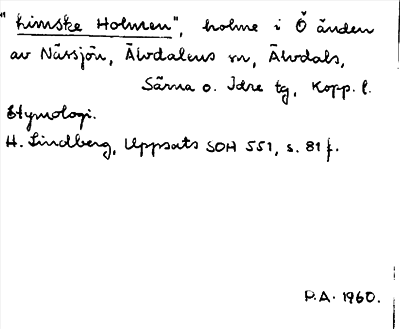 "Limske Holmen", holme i Ö änden
av Nässjön, Älvdalens sn, Älvdals,
Särna o. Idre tg, Kopp. l.
Etymologi.
H. Lindberg, Uppsats SOH 551, s. 81 f.
P.A. 1960.